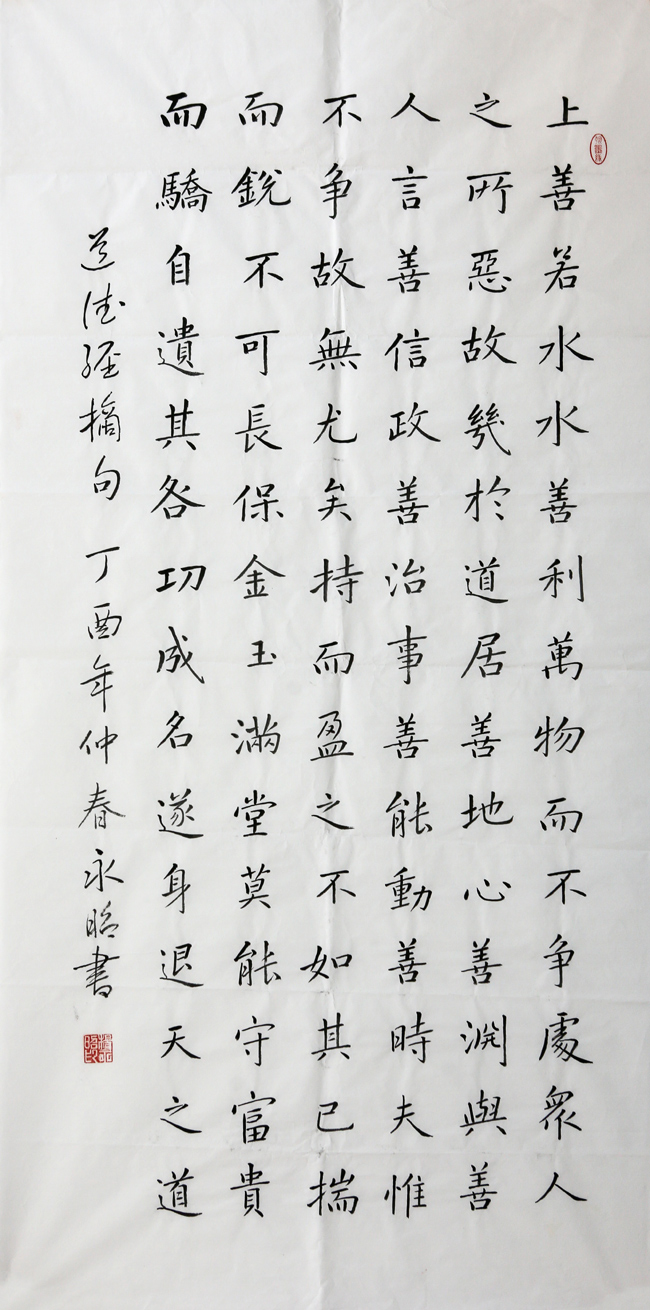 上善若水水善利萬物而不争處衆人
之所惡故幾於道居善地心善淵與善
人言善信政善治事善能動善時夫惟
不争故無尤矣持而盈之不如其已揣
而銳不可長保金玉滿堂莫能守富貴
而驕自遺其咎功成名遂身退天之道
道德經摘句丁酉年仲春永昭書